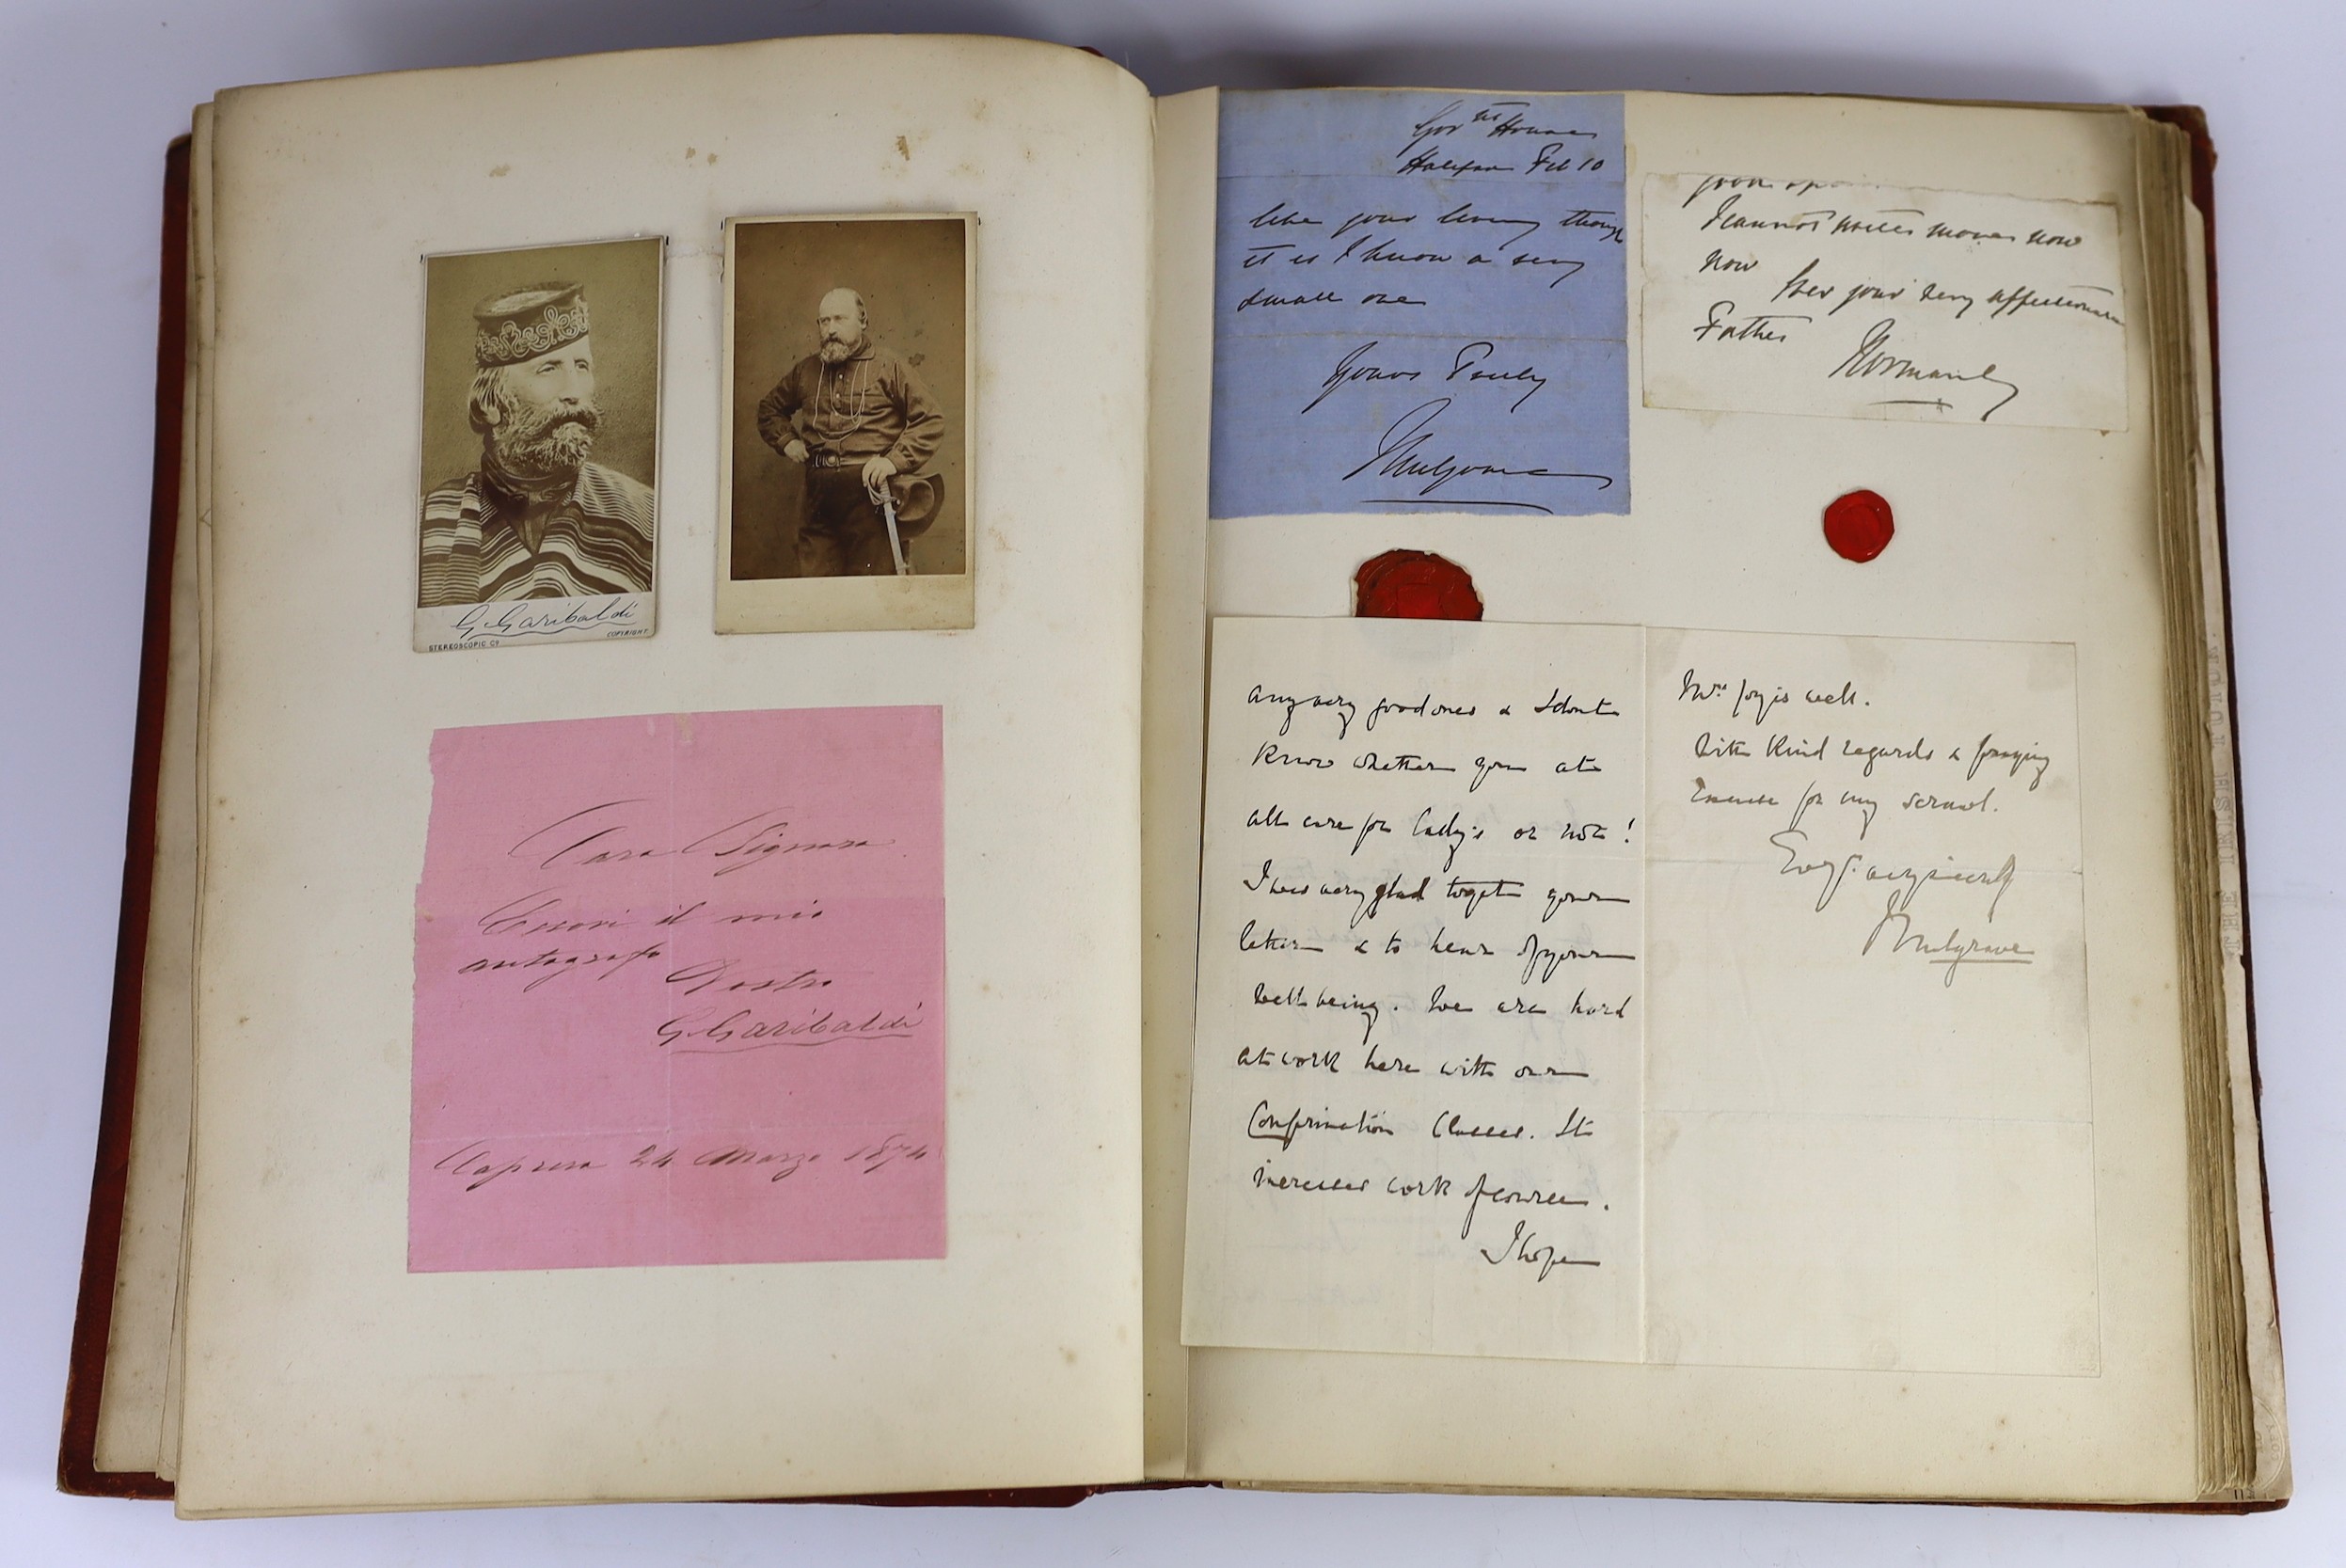 G. Garibaldi
STEREOSCOPIC Co
COPYRIGHT
Cara Signora
Eccovi il mio
autografo
Vostro
G. Garibaldi
Caprera 24 Marzo 1874
Govnt House
Halifax Feb 10
like your living though
it is I know a very
small one
Yours Truly
Mulgrave
I cannot write more now
now
Ever your very affectionate
Father
Normanby
any very good ones & I dont
know whether you at
all care for Lady's or not!
I was very glad to get your
letter & to hear of your
well being. We are hard
at work here with our
Confirmation Classes. It
increases work of course.
I hope
Mrs Joy is well.
With kind regards & praying
excuse for my scrawl.
Mulgrave